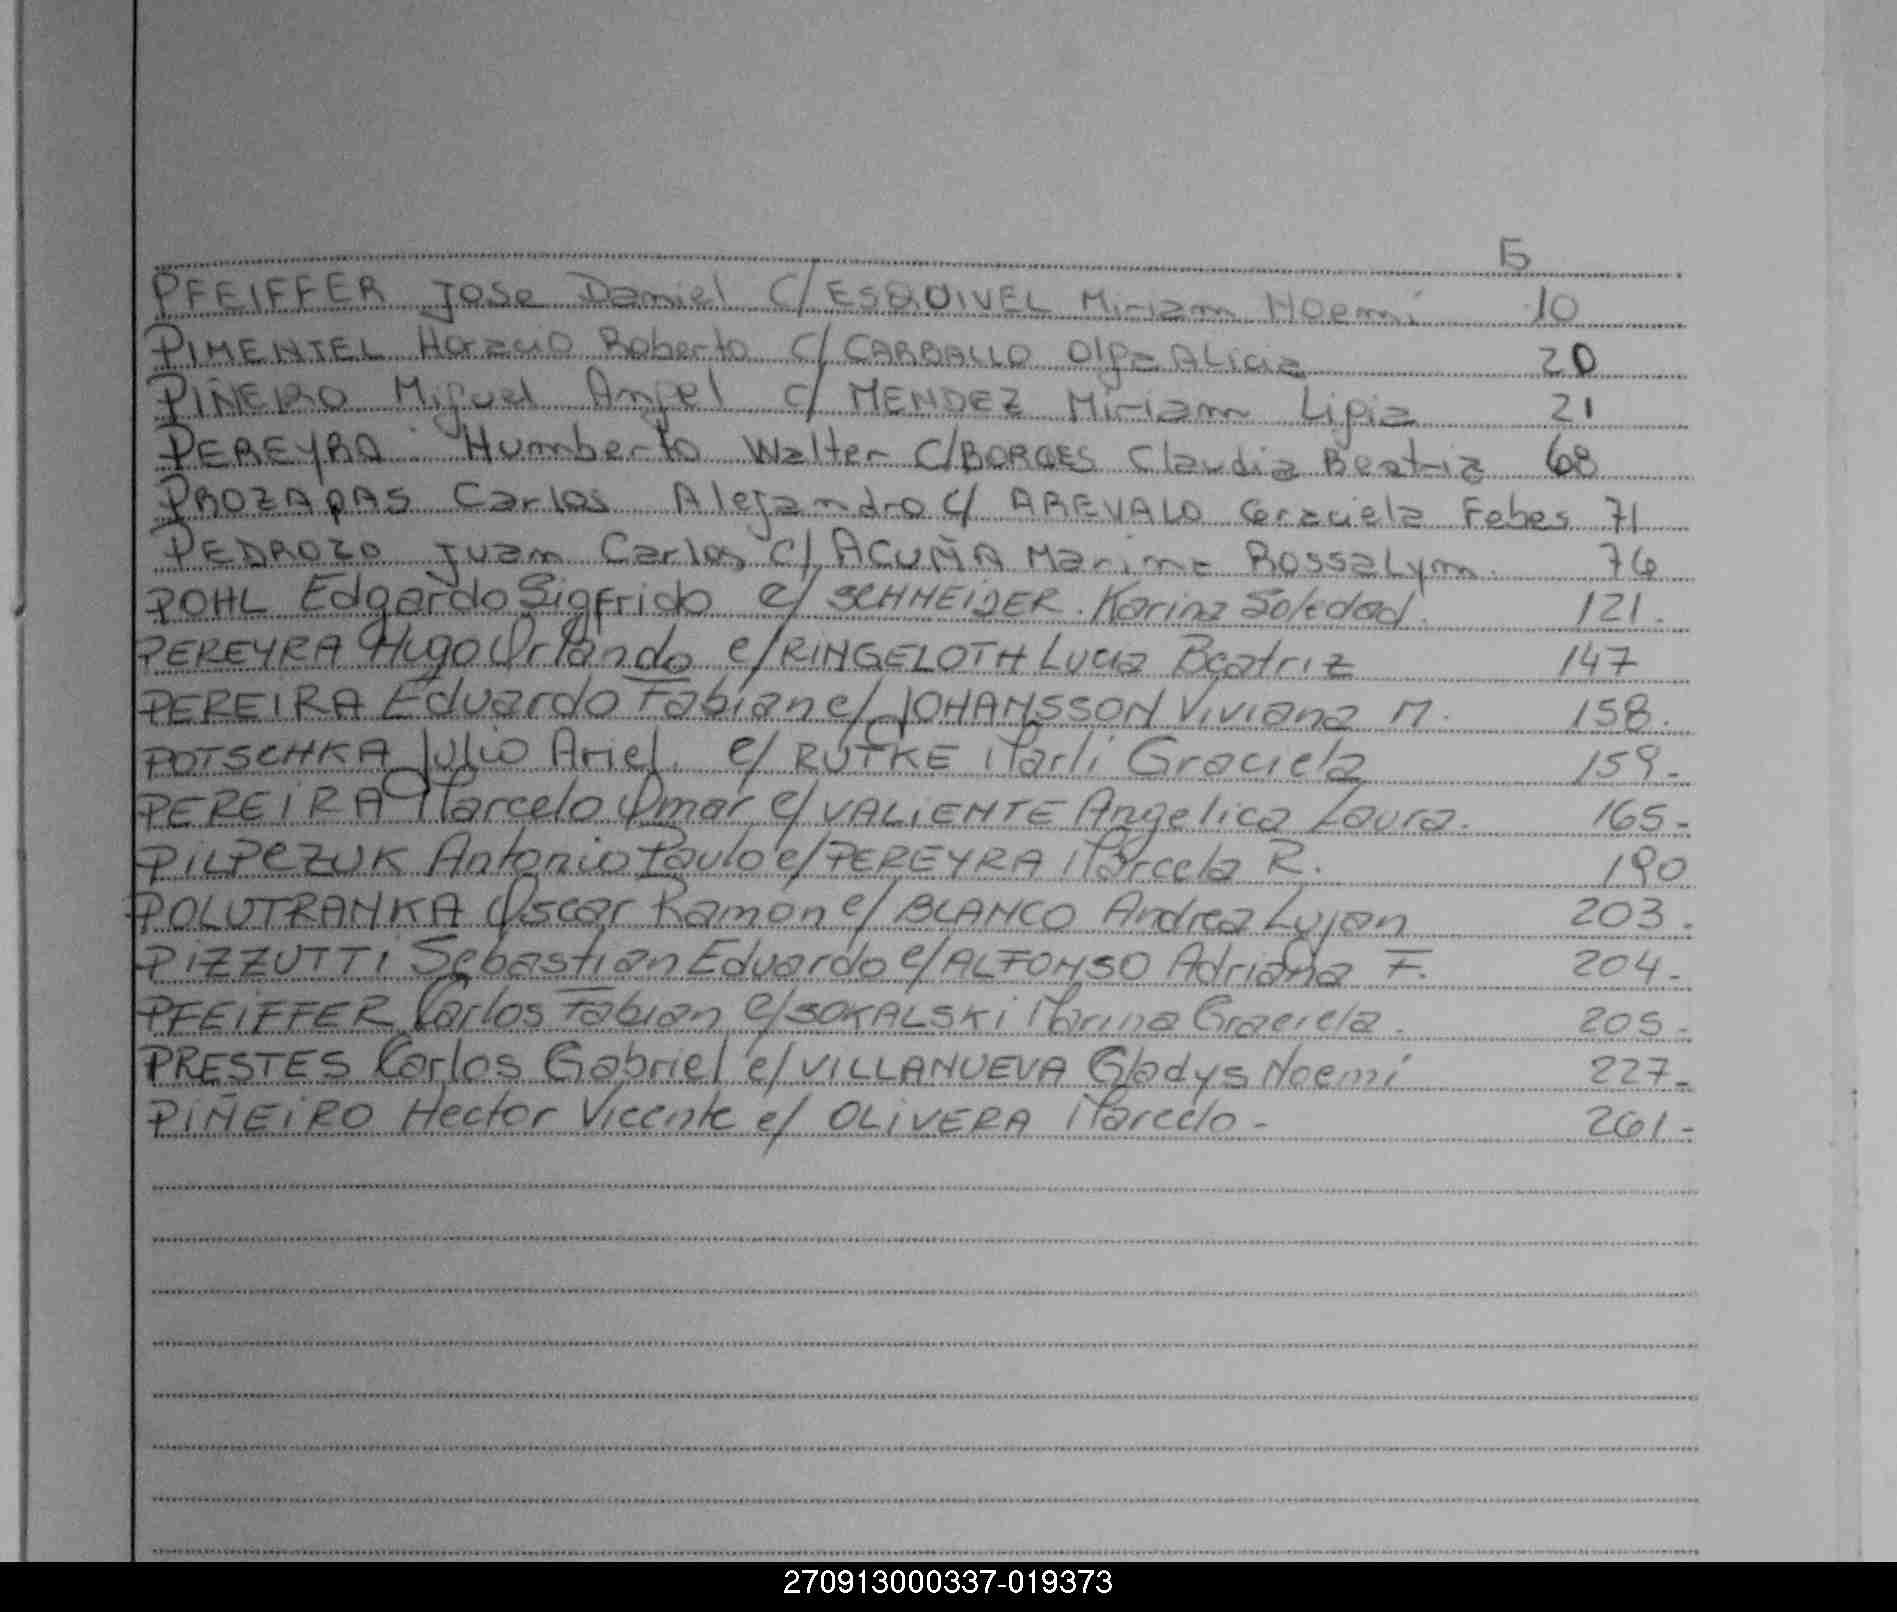 5
PFEIFFER Jose Daniel C/ ESQUIVEL Miriam Noemi 10
PIMENTEL Horacio Roberto C/ CARBALLO Olga Alicia 20
PIÑEIRO Miguel Angel C/ MENDEZ Miriam Ligia 21
PEREYRA Humberto Walter C/ BORGES Claudia Beatriz 68
PROZAPAS Carlos Alejandro C/ AREVALO Graciela Febes 71
PEDROZO Juan Carlos C/ ACUÑA Marina RossaLym 76
POHL Edgardo Sigfrido c/ SCHNEIDER. Karina Soledad. 121.
PEREYRA Hugo Orlando c/ RINGELOTH Lucia Beatriz 147
PEREIRA Eduardo Fabian c/ JOHANSSON Viviana M. 158.
POTSCHKA Julio Ariel. c/ RUTKE Marli Graciela 159.-
PEREIRA Marcelo Omar c/ VALIENTE Angelica Laura. 165.-
PILPCZUK Antonio Paulo c/ PEREYRA Marcela R. 190
POLUTRANKA Oscar Ramon c/ BLANCO Andrea Lujan 203.
PIZZUTTI Sebastian Eduardo c/ ALFONSO Adriana F. 204.-
PFEIFFER Carlos Fabian c/ SOKALSKI Marina Graciela. 205.-
PRESTES Carlos Gabriel c/ VILLANUEVA Gladys Noemi 227.-
PIÑEIRO Hector Vicente c/ OLIVERA Marcelo - 261.-
270913000337-019373